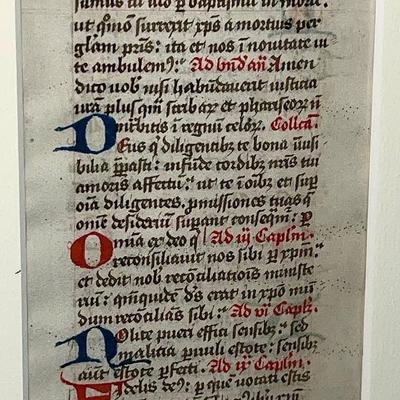 ut quõm surrexit xp̃s a mortuis per
gl̃am pris: ita et nos ĩ nouitate ui
te ambulem⁹: Ad vñd̃ añ Amen
dico uob̃ nisi habũdauerit iusticia
ura plus qm̃ scribaꝝ et phariseoꝝ ñ
intrabitis ĩ regnũ celoꝝ. Collcã.
Deus q̃ diligentibꝫ te bona ĩuisi
bilia p̃pasti: infũde cordibꝫ nr̃is tui
amoris affectũ: ut te ĩ oĩbꝫ et suꝑ
oĩa diligentes. ꝓmissiones tuas q̃
omẽ desideriũ suꝑant consequm̃: ꝑ
Omĩa ex deo q̃ Ad iij Caplm̃.
reconsiliauit nos sibi ꝑ xpm̃:
et dedit nob̃ recõsiliationis ministe
riũ: qm̃quidẽ ds̃ erat in xpõ mun
dum recõsilias sibi: Ad vi Capl̃.
Nolite pueri effici sensibꝫ: sed
malicia ꝑuuli estote: sensibꝫ
aũt estote ꝑfecti. Ad ix Caplm̃.
Fidelis de⁹: ꝑ quẽ uocati estis